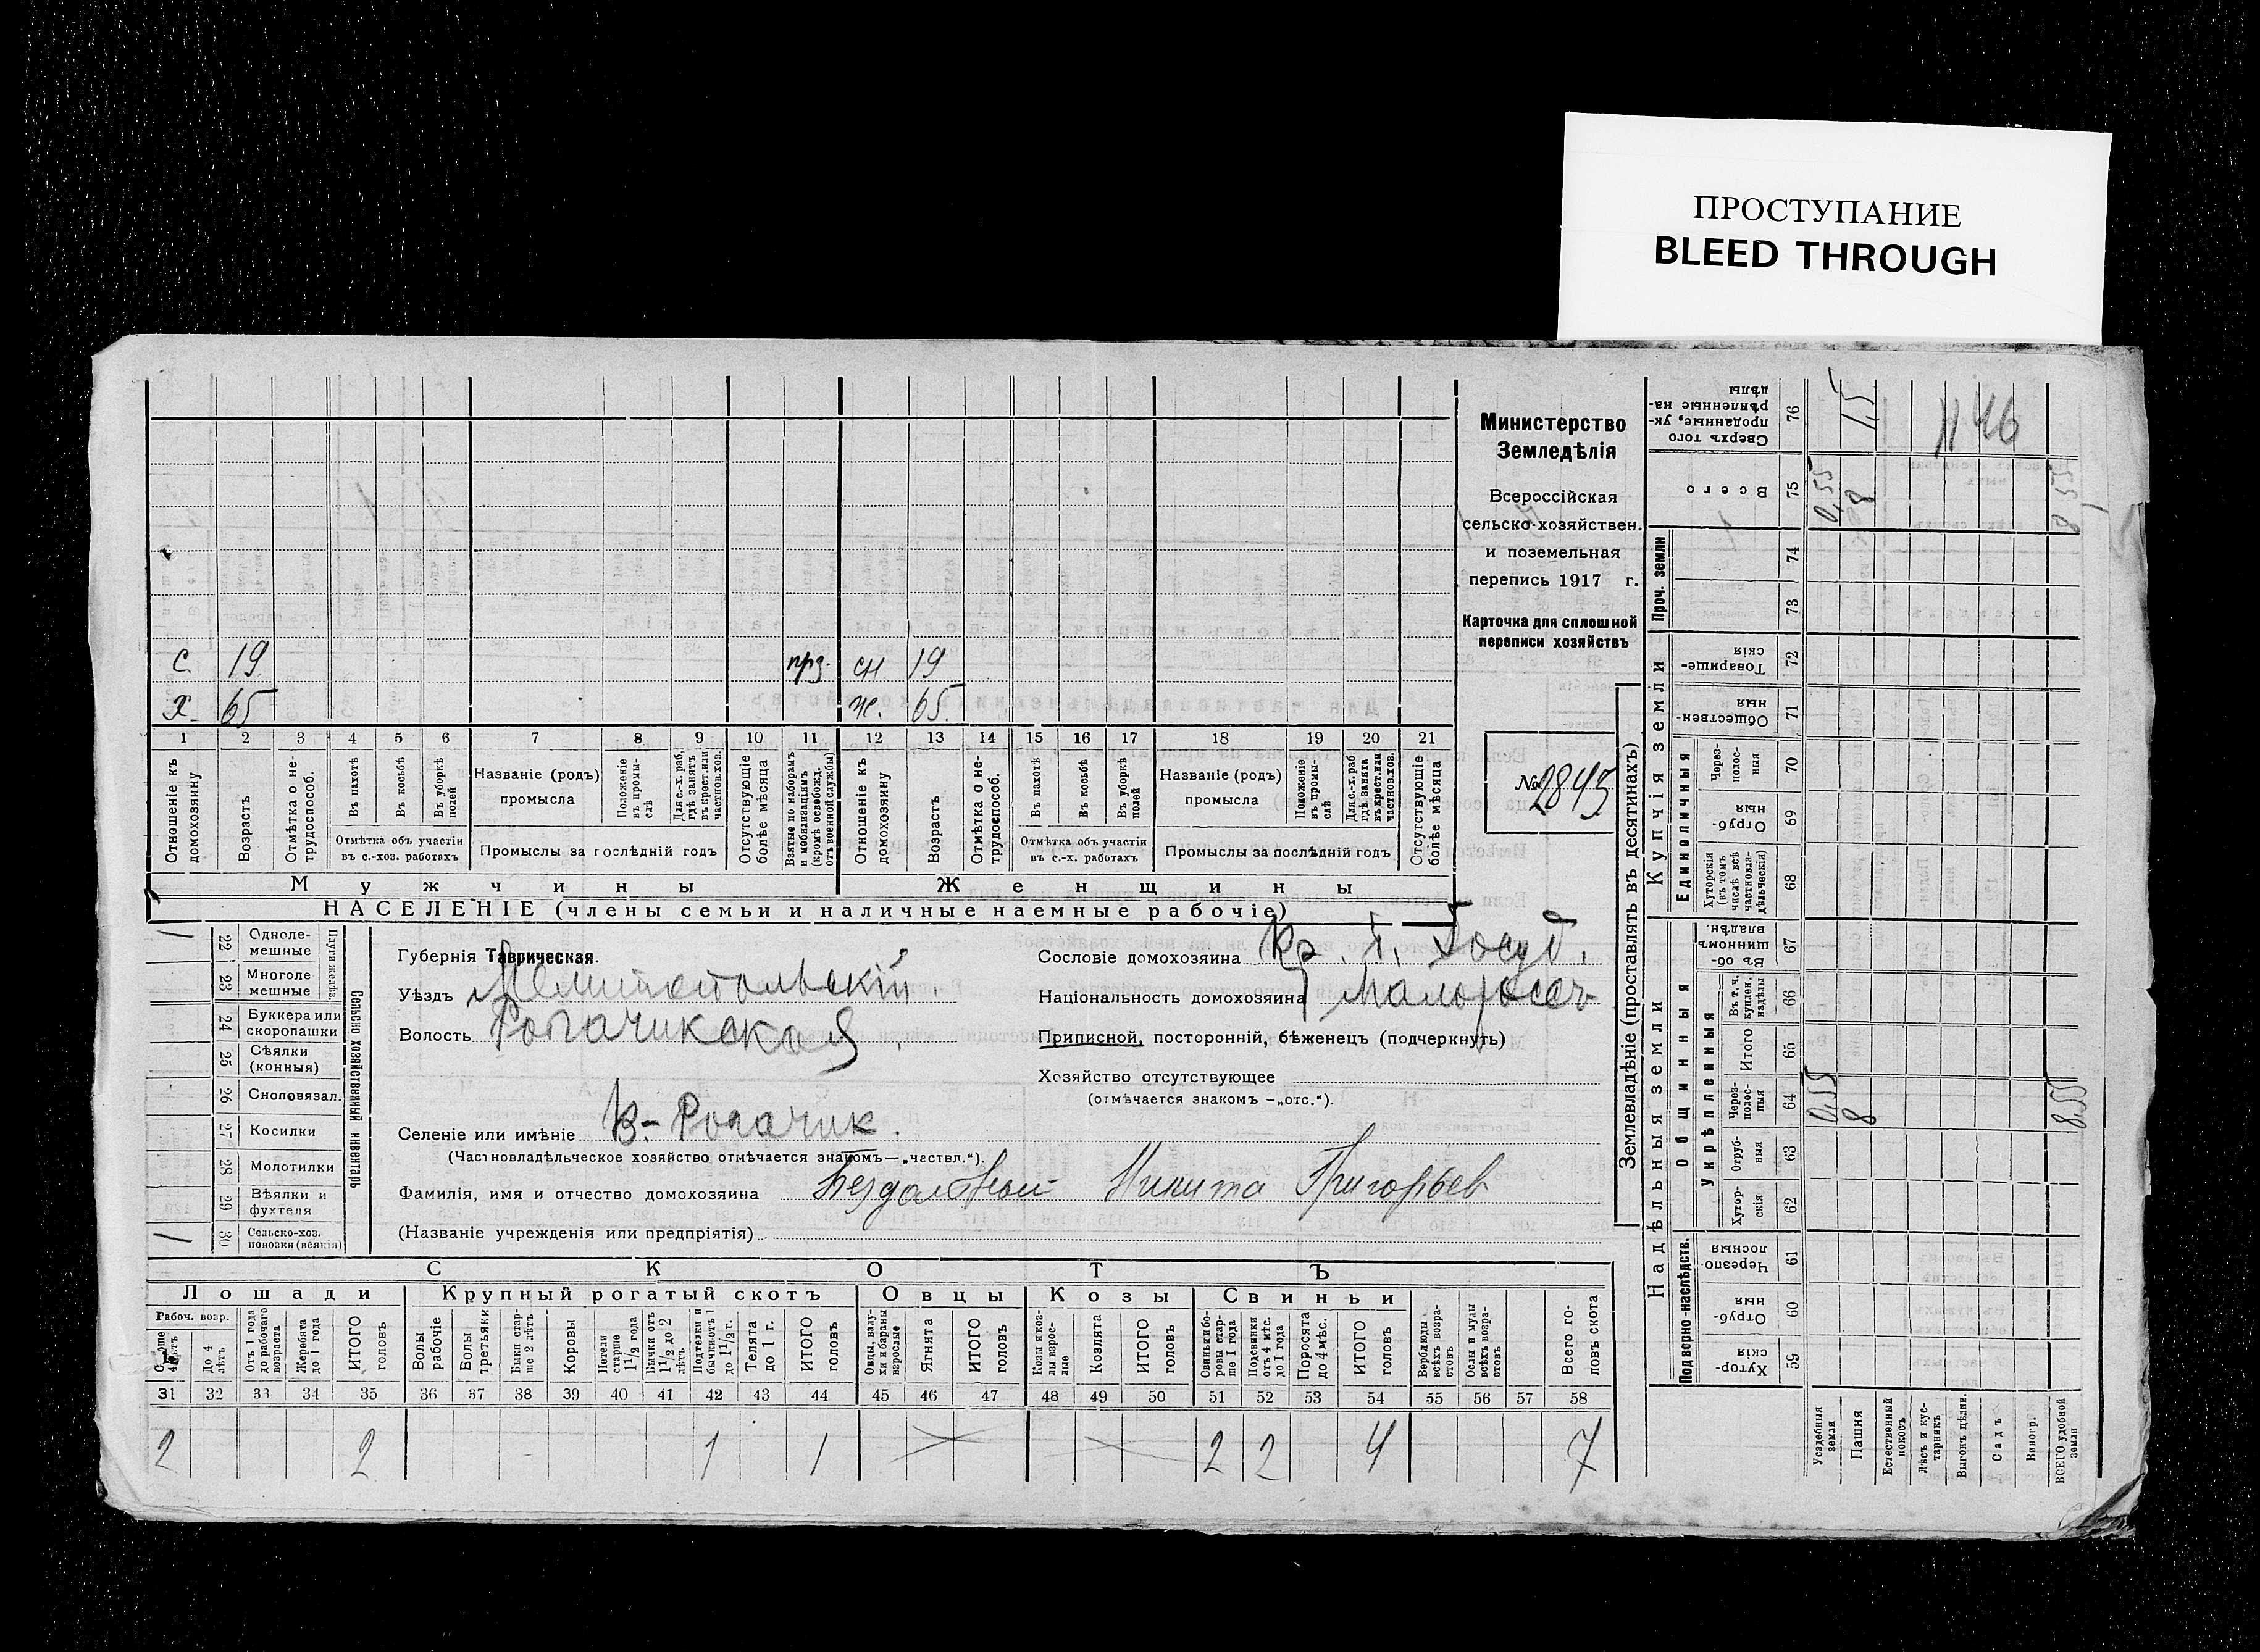 ПРОСТУПАНИЕ
BLEED THROUGH
Министерство
Земледѣлія
Всероссійская
сельско-хозяйствен.
и поземельная
перепись 1917 г.
Карточка для сплошной
переписи хозяйствъ
№ 2843
С. 19 прз. сн. 19
Х. 65 ж. 65.
1 2 3 4 5 6 7 8 9 10 11 12 13 14 15 16 17 18 19 20 21
Отношеніе къ домохозяину
Возрастъ
Отмѣтка о не-трудоспособ.
Въ пахотѣ
Въ косьбѣ
Въ уборкѣ полей
Отмѣтка объ участіи въ с.-хоз. работахъ
Названіе (родъ) промысла
Положеніе въ промы-слѣ
Для с.-х. раб. гдѣ занятъ въ крест. или частнов. хоз.
Промыслы за послѣдній годъ
Отсутствующіе болѣе мѣсяца
Взятые по наборамъ и мобилизаціямъ (кромѣ освобожд. отъ военной службы)
Отношеніе къ домохозяину
Возрастъ
Отмѣтка о не-трудоспособ.
Въ пахотѣ
Въ косьбѣ
Въ уборкѣ полей
Отмѣтка объ участіи въ с.-х. работахъ
Названіе (родъ) промысла
Положеніе въ промы-слѣ
Для с.-х. раб. гдѣ занята въ крест. или частнов. хоз.
Промыслы за послѣдній годъ
Отсутствующіе болѣе мѣсяца
Мужчины Женщины
НАСЕЛЕНІЕ (члены семьи и наличные наемные рабочіе)
Сельско хозяйственный инвентарь
Плуги желѣз.
22 Одноле-мешные 1
23 Многоле мешные
24 Буккера или скоропашки
25 Сѣялки (конныя)
26 Сноповязал.
27 Косилки
28 Молотилки
29 Вѣялки и фухтеля
30 Сельско-хоз. повозки (всякія) 1
Губернія Таврическая.
Уѣздъ Мелитопольскій.
Волость Рогачикская
Селеніе или имѣніе В.-Рогачик.
(Частновладѣльческое хозяйство отмѣчается знакомъ—„частвл.“).
Фамилія, имя и отчество домохозяина Никита Григорьев
(Названіе учрежденія или предпріятія)
Сословіе домохозяина Кр. Госуд.
Національность домохозяина Малороссъ
Приписной, посторонній, бѣженецъ (подчеркнуть)
Хозяйство отсутствующее
(отмѣчается знакомъ —„отс.“).
СКОТЪ
Лошади Крупный рогатый скотъ Овцы Козы Свиньи
Рабоч. возр.
Старше 4 лѣтъ
До 4 лѣтъ
Отъ 1 года до рабочаго возраста
Жеребята до 1 года
ИТОГО головъ
Волы рабочіе
Волы третьяки
Быки стар-ше 2 лѣтъ
Коровы
Нетели старше 1 1/2 года
Бычки отъ 1 1/2 до 2 лѣтъ
Подтелки и бычки отъ 1 до 1 1/2 г.
Телята до 1 г.
ИТОГО головъ
Овцы, валу-хи и бараны взрослые
Ягнята
ИТОГО головъ
Козы и коз-лы взрос-лые
Козлята
ИТОГО головъ
Свиньи и бо-ровы стар-ше 1 года
Подсвинки отъ 4 мѣс. до 1 года
Поросята до 4 мѣс.
ИТОГО головъ
Верблюды всѣхъ возра-стовъ
Ослы и мулы всѣхъ возра-стовъ
Всего го-ловъ скота
31 32 33 34 35 36 37 38 39 40 41 42 43 44 45 46 47 48 49 50 51 52 53 54 55 56 57 58
2 2 1 1 2 2 4 7
Землевладѣніе (проставлять въ десятинахъ)
Надѣльныя земли Купчія земли Проч. земли
Подворно-наслѣдств.
Общинныя
Укрѣпленныя
Единоличныя
59 Хутор-скія
60 Отруб-ныя
61 Черезпо лосныя
62 Хутор-скія
63 Отруб-ныя
64 Через-полос-ныя
65 Итого
66 Въ т. ч. куплен. надѣлы
67 Въ об-щинномъ владѣн.
68 Хуторскія (въ томъ числѣ всѣ частновла-дѣльческія)
69 Отруб-ныя
70 Через-полос-ныя
71 Обществен-ныя
72 Товарище-скія
73
74
75 Всего
76 Сверхъ того проданные, ук-рѣпленные на-дѣлы
Усадебная земля 0,55 0,55
Пашня 8 8 1,5
Естественный покосъ
Лѣсъ и кус-тарникъ
Выгонъ цѣлин.
Садъ
Виногр.
ВСЕГО удобной земли 8,55 8,55
Н 46